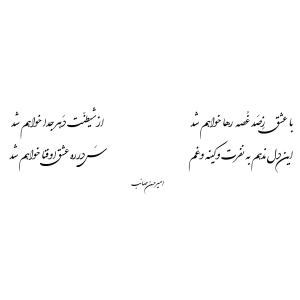 با عشق زصد غصه رها خواهم شد
از شیطنت دهر جدا خواهم شد
این دل ندهم به نفرت و کینه و غم
سر در ره عشق او فنا خواهم شد
امیرحسن صائب